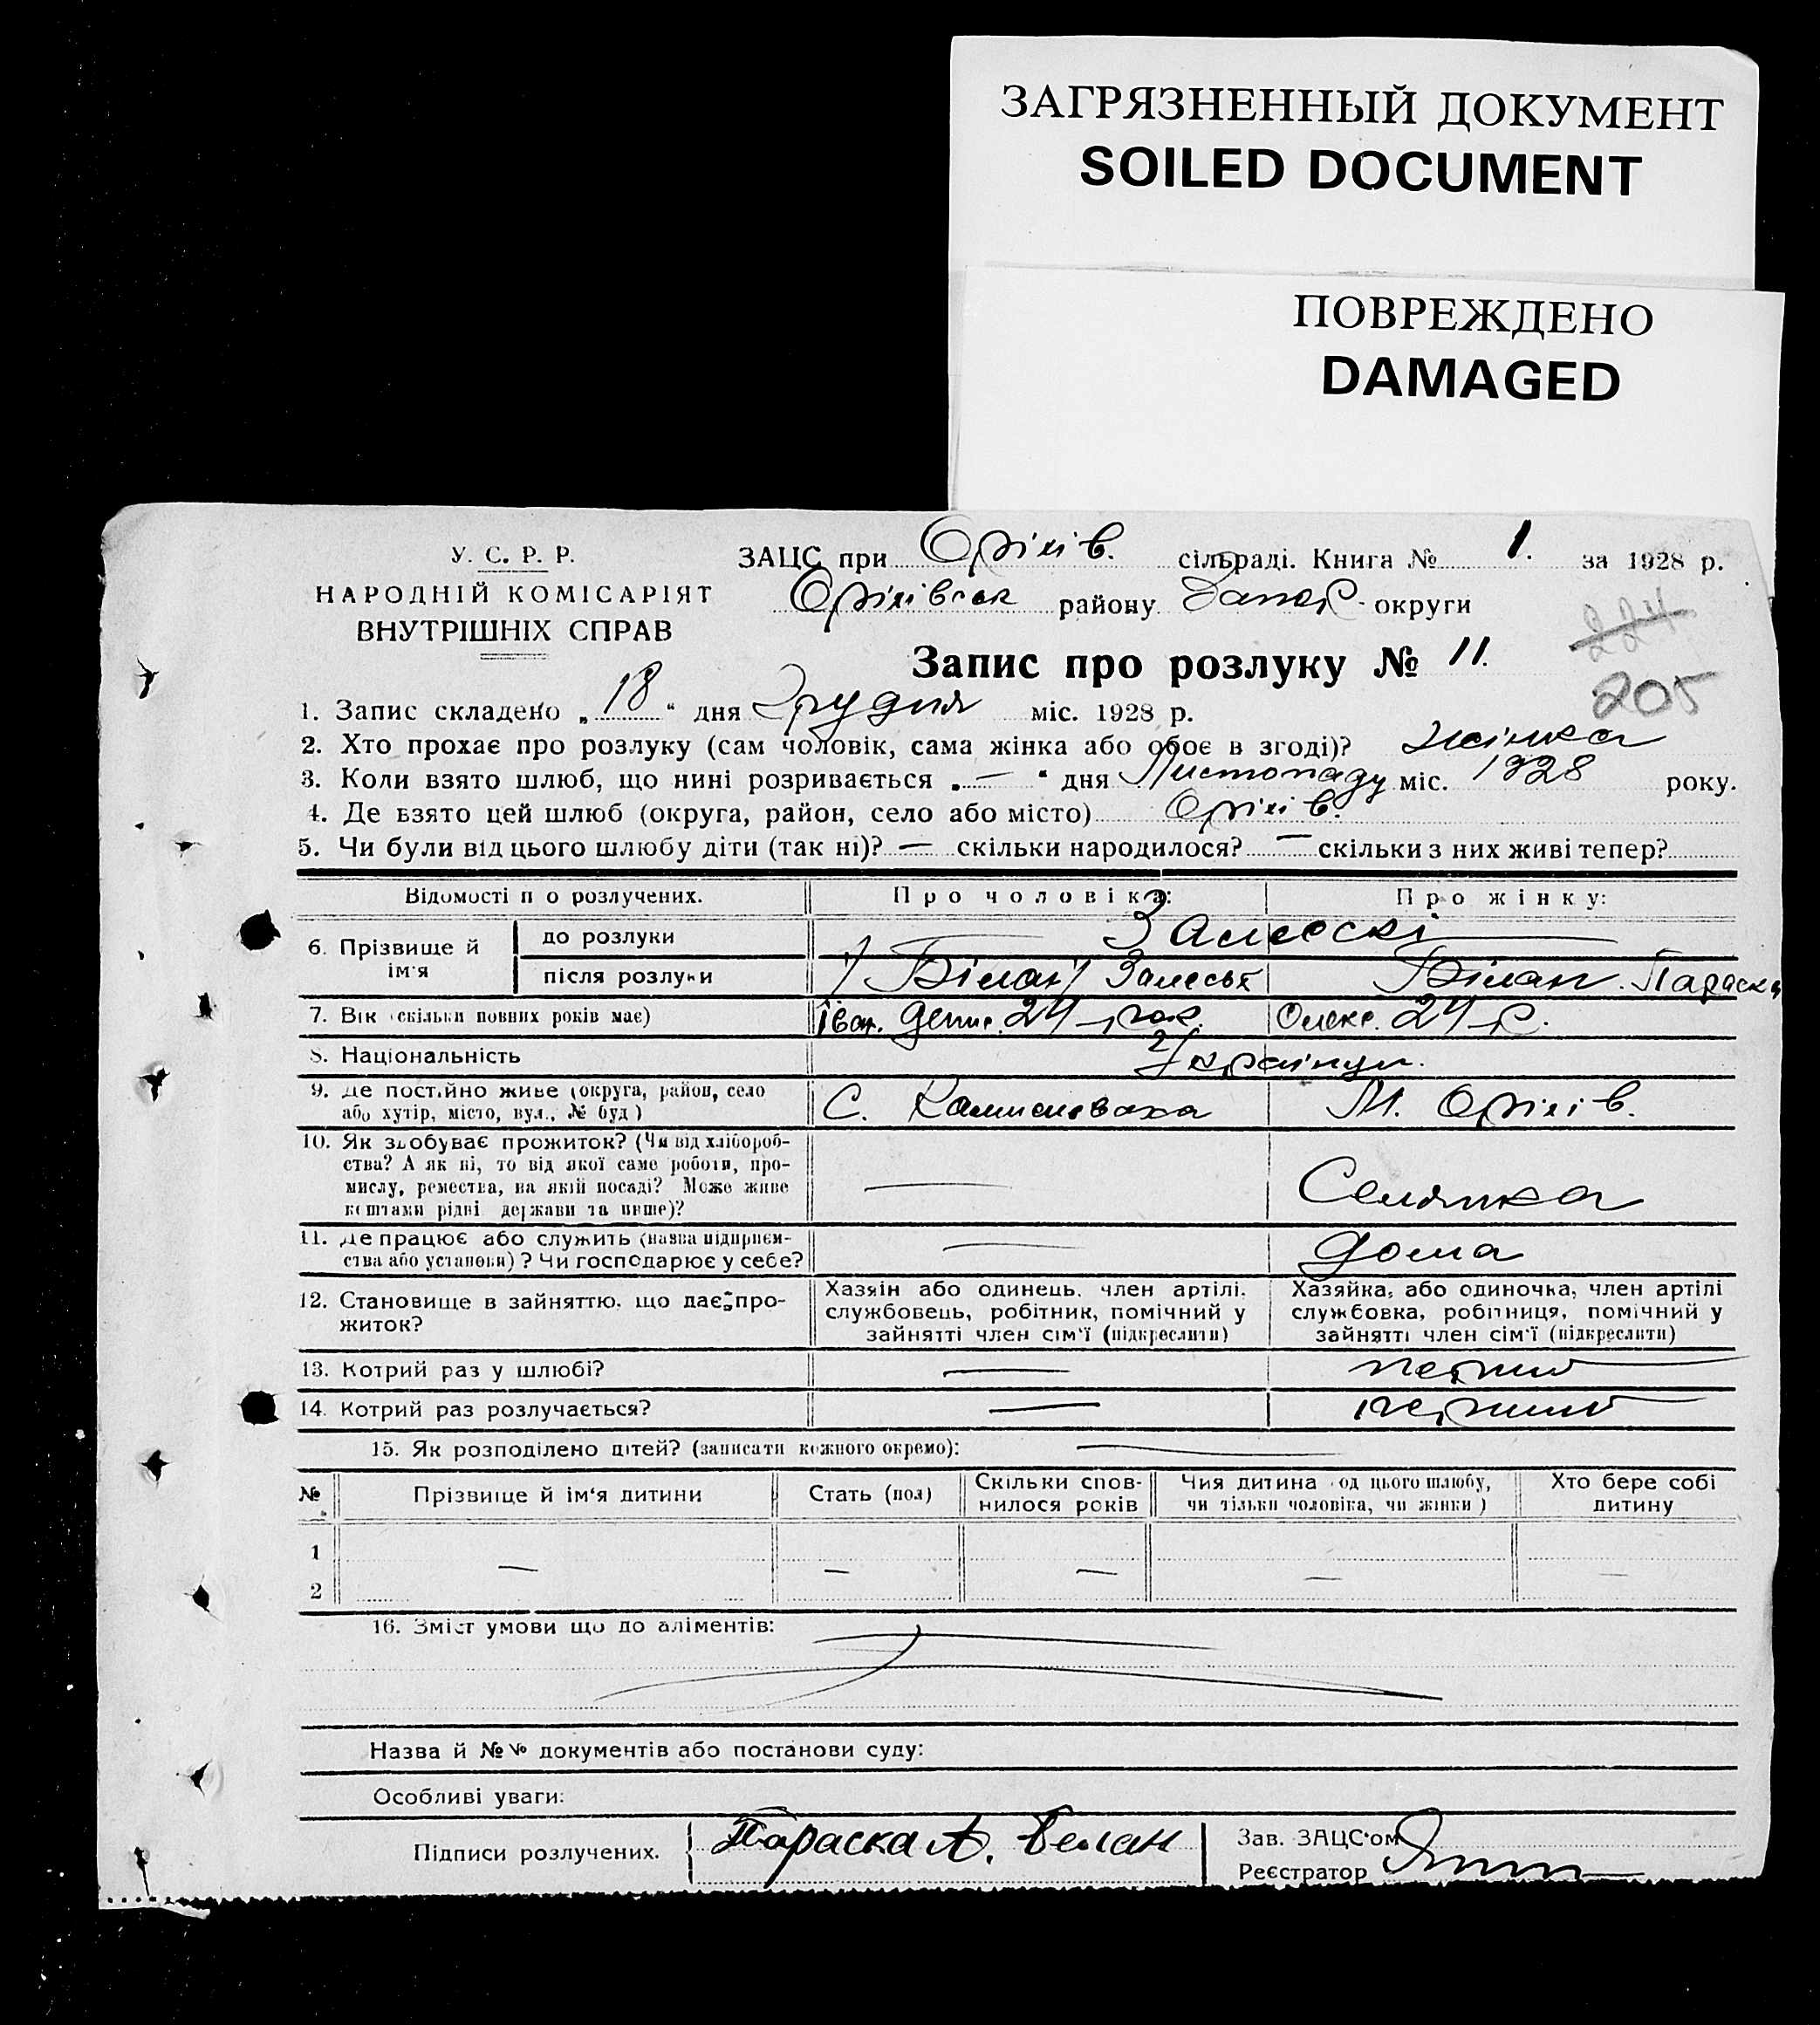 ЗАГРЯЗНЕННЫЙ ДОКУМЕНТ
SOILED DOCUMENT
ПОВРЕЖДЕНО
DAMAGED
У. С. Р. Р.
НАРОДНІЙ КОМІСАРІЯТ
ВНУТРІШНІХ СПРАВ
ЗАЦС при Оріхів. сільраді. Книга № 1. за 1928 р.
Оріхівськ району Запор. округи
224
Запис про розлуку № 11.
205
1. Запис складено „18“ дня Грудня міс. 1928 р.
2. Хто прохає про розлуку (сам чоловік, сама жінка або обоє в згоді)? жінка
3. Коли взято шлюб, що нині розривається „—“ дня Листопаду міс. 1928 року.
4. Де взято цей шлюб (округа, район, село або місто) Оріхів.
5. Чи були від цього шлюбу діти (так ні)? — скільки народилося? — скільки з них живі тепер?
Відомості п о розлучених. Про чоловіка: Про жінку:
6. Прізвище й ім'я до розлуки
після розлуки Білан Білан. Параска
7. Вік (скільки повних років має) Іван. 24 рок. Олекс. 24 р.
8. Національність Українці.
9. Де постійно живе (округа, район, село або хутір, місто, вул., № буд) С. Камишеваха М. Оріхів.
10. Як здобуває прожиток? (Чи від хлібороб-
ства? А як ні, то від якої саме роботи, про-
мислу, ремества, на якій посаді? Може живе
коштами рідні держави та инше)? — Селянка
11. Де працює або служить (назва підприєм-
ства або установи)? Чи господарює у себе? — Дома
12. Становище в зайняттю, що дає про-
житок?
Хазяін або одинець, член артілі,
службовець, робітник, помічний у
зайнятті член сім'ї (підкреслити)
Хазяйка, або одиночка, член артілі
службовка, робітниця, помічний у
зайнятті член сім'ї (підкреслити)
13. Котрий раз у шлюбі? — перший
14. Котрий раз розлучається? — перший
15. Як розподілено дітей? (записати кожного окремо): —
№ Прізвище й ім'я дитини Стать (пол) Скільки спов-
нилося років Чия дитина (од цього шлюбу,
чи тільки чоловіка, чи жінки) Хто бере собі
дитину
1
2
16. Зміст умови що до аліментів:
Назва й №№ документів або постанови суду:
Особливі уваги:
Підписи розлучених. Параска А. Белан
Зав. ЗАЦС'ом
Реєстратор